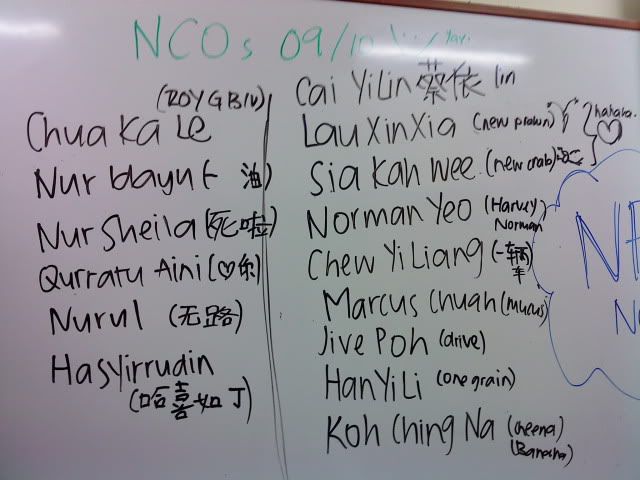 NCOs 09/10
(ROYGBIV)
Chua Ka Le
Nur Idayu (- 油)
Nur Sheila (死啦)
Qurratu Aini (♡你)
Nurul (无路)
Hasyirrudin
(哈喜如丁)
Cai YiLin 蔡依 lin
Lau XinXia (new prawn)
hahaha.
Sia Kah Wee (new crab)
Norman Yeo (Harvey
Norman
Chew Yi Liang (一辆
车)
Marcus Chuah (mucus)
Jive Poh (drive)
Han Yi Li (one grain)
Koh Ching Na (cheena)